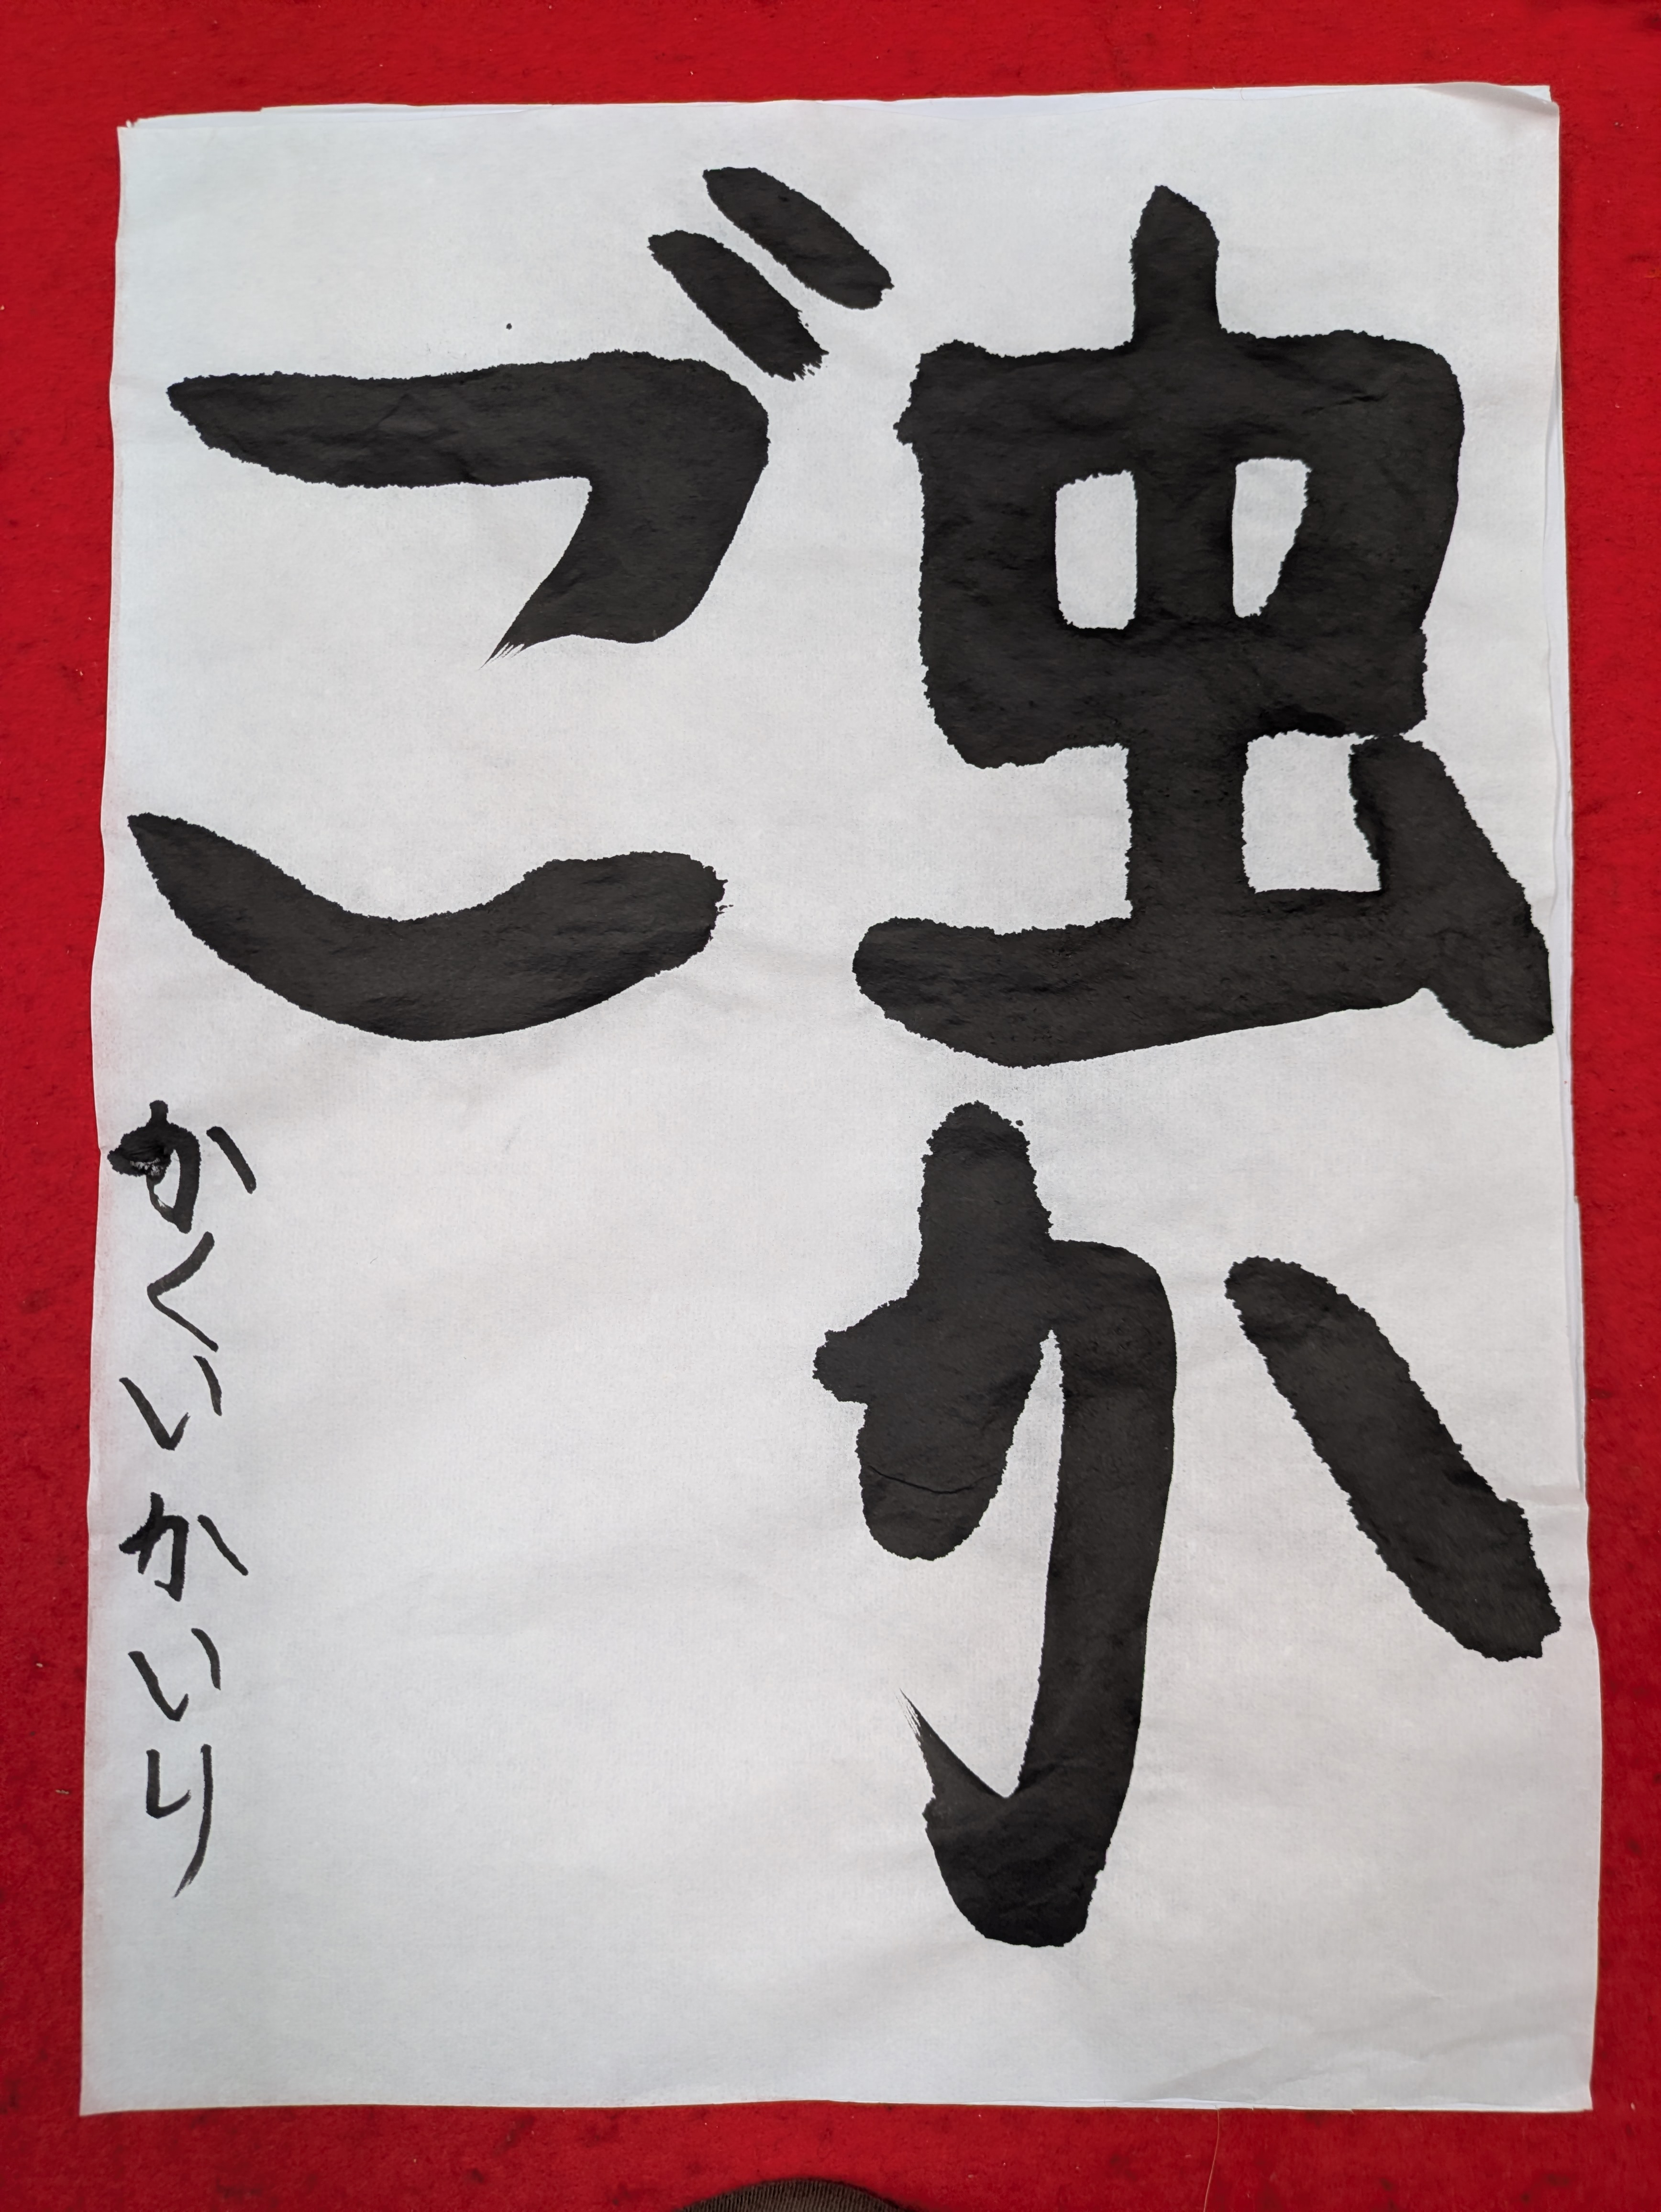 虫か
ご
かくいかいり